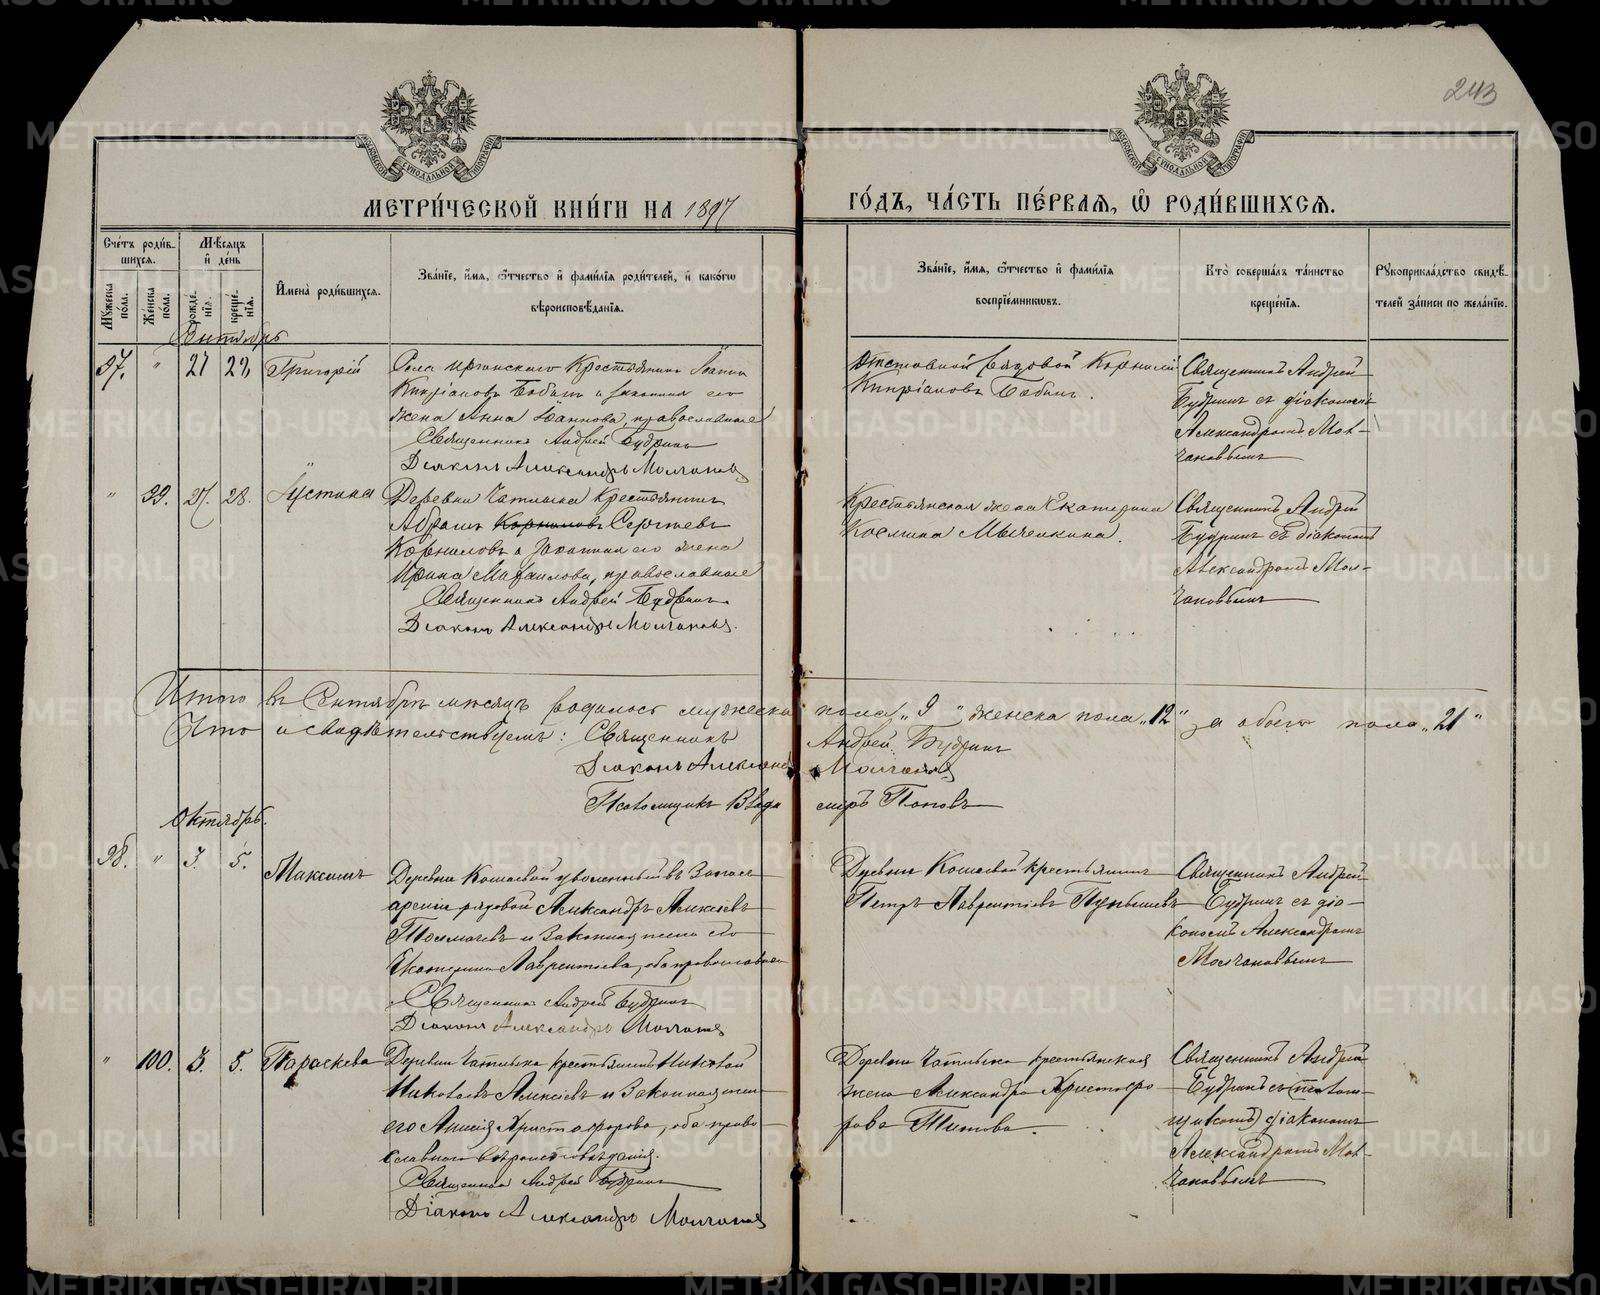 243
МОСКОВСКОЙ СУНОДАЛЬНОЙ ТИПОГРАФІИ
МОСКОВСКОЙ СУНОДАЛЬНОЙ ТИПОГРАФІИ
МЕТРИ́ЧЕСКОЙ КНИ́ГИ НА 1897
ГО́ДЪ, ЧА́СТЬ ПЕ́РВАЯ, Ѡ҆ РОДИ́ВШИХСЯ.
Сче́тъ роди́в-
шихся.
Мѣ́сяцъ
и҆ де́нь
Му́жеска по́ла.
Же́нска по́ла.
рожде́-
нїя.
креще́-
нїя.
И҆мена̀ роди́вшихся.
Зва́нїе, и҆́мя, ѻ҆́тчество и҆ фами́лїя роди́телей, и҆ како́гѡ
вѣроисповѣ́данїя.
Зва́нїе, и҆́мя, ѻ҆́тчество и҆ фами́лїя
воспрїе́мникѡвъ.
Кто̀ соверша́лъ та́инство
креще́нїя.
Рꙋкоприкла́дство свидѣ́-
телей за́писи по жела́нїю.
97. " 27 29, Григорій
Крестьянинъ Іоаннъ
Кипріановъ Бабинъ и законная его
жена Анна Іоаннова, православные
Священникъ Андрей Будринъ
Діаконъ Александръ Молчановъ
Отставной рядовой Корнилій
Кипріановъ Бабинъ.
Священникъ Андрей
Будринъ съ діакономъ
Александромъ Мол-
чановымъ
" 99. 27. 28. Іустина
Деревни Крестьянинъ
Абрамъ Корниловъ Сергѣевъ
Корниловъ и Законная его жена
Ирина Михаилова, православные
Священникъ Андрей Будринъ
Діаконъ Александръ Молчановъ.
Крестьянская жена Екатерина
Космина
Священникъ Андрей
Будринъ съ діакономъ
Александромъ Мол-
чановымъ
Итого въ Сентябрѣ мѣсяцѣ родилось мужеска пола „ 9 " женска пола „12" а обоего пола „21"
Что и свидѣтельствуемъ: Священникъ Андрей Будринъ
Діаконъ Александръ Молчановъ
Псаломщикъ Владимиръ Поповъ
Октябрь.
98. " 3. 5. Максимъ
Деревни Кошаевой уволенный въ Запасъ
арміи рядовой Александръ Алексѣевъ
Толмачевъ и Законная жена его
Екатерина Лаврентіева, оба православные
Священникъ Андрей Будринъ
Діаконъ Александръ Молчановъ
Деревни Кошаевой крестьянинъ
Петръ Лаврентіевъ
Священникъ Андрей
Будринъ съ діа-
кономъ Александромъ
Молчановымъ
" 100. 3. 5. Параскева
Деревни крестьянинъ Николай
Николаевъ Алексѣевъ и Законная жена
его Анисія Христофорова, оба право-
славного вѣроисповѣданія.
Священникъ Андрей Будринъ
Діаконъ Александръ Молчановъ
Деревни крестьянская
жена Александра Христофо-
рова Титова.
Священникъ Андрей
Будринъ съ псалом-
щикомъ діакономъ
Александромъ Мол-
чановымъ
METRIKI.GASO-URAL.RU